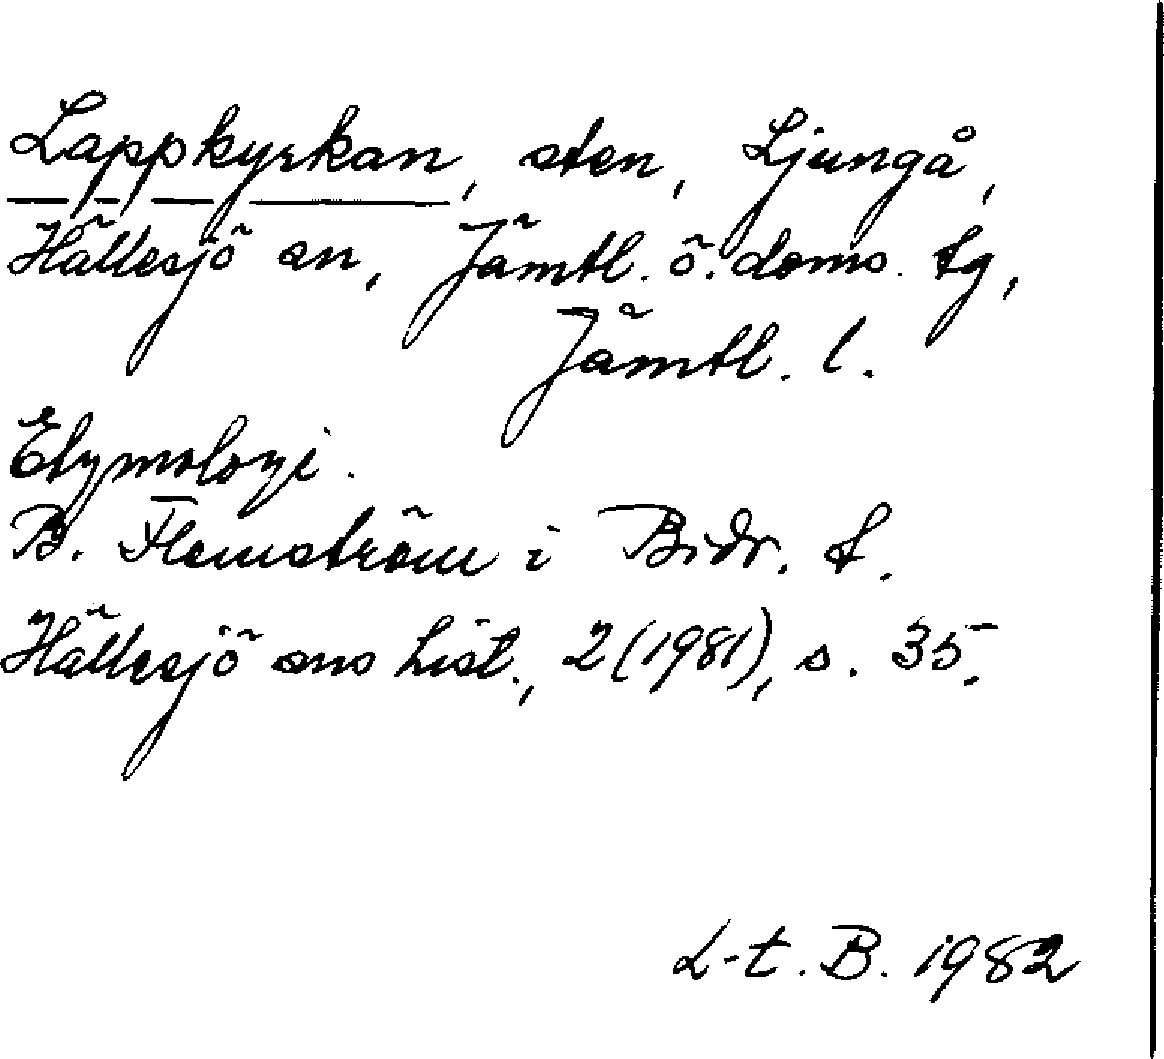 Lappkyrkan, sten, Ljungå,
Hällesjö sn, Jämtl. ö. doms. tg,
Jämtl. l.
Etymologi.
B. Flemström i Bidr. t.
Hällesjö sns hist., 2(1981), s. 35.
L-t. B. 1982